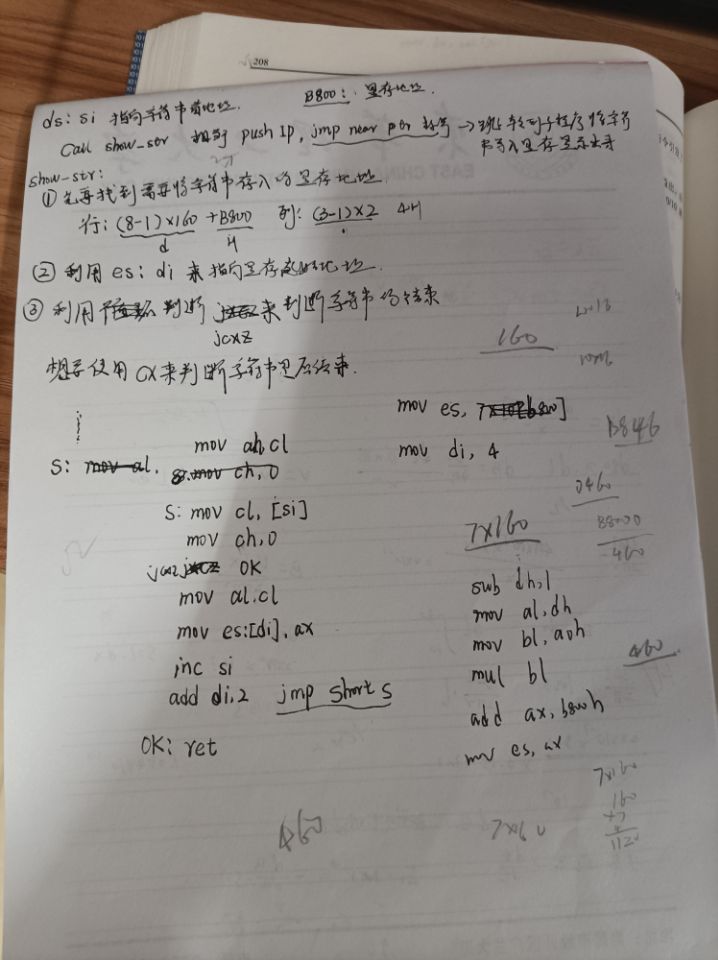 208
B800: 显存地址
ds: si 指向字符串首地址.
Call show_str 相当 push IP, jmp near ptr 标号 → 跳转到子程序将字符
串写入显存显示出来
show_str:
① 先要找到需要将字符串存入的显存地址.
行: (8-1)×160 + B800 列: (3-1)×2 4H
d H
② 利用 es: di 来指向显存的地址.
③ 利用 判断 来判断字符串的结束
jcxz
想要使用 cx 来判断字符串是否结束.
160
mov es, 7×160[b800]
B846
mov ah, cl
mov di, 4
S: mov al.
s: mov ch, 0
0460
S: mov cl, [si]
7×160
mov ch, 0
460
jcxz OK
sub dh, 1
mov al, cl
mov al, dh
mov es:[di], ax
mov bl, a0h
460
inc si
mul bl
add di, 2 jmp short s
add ax, b800h
OK: ret
mov es, ax
7×160
160
×7
1120
460
7×160